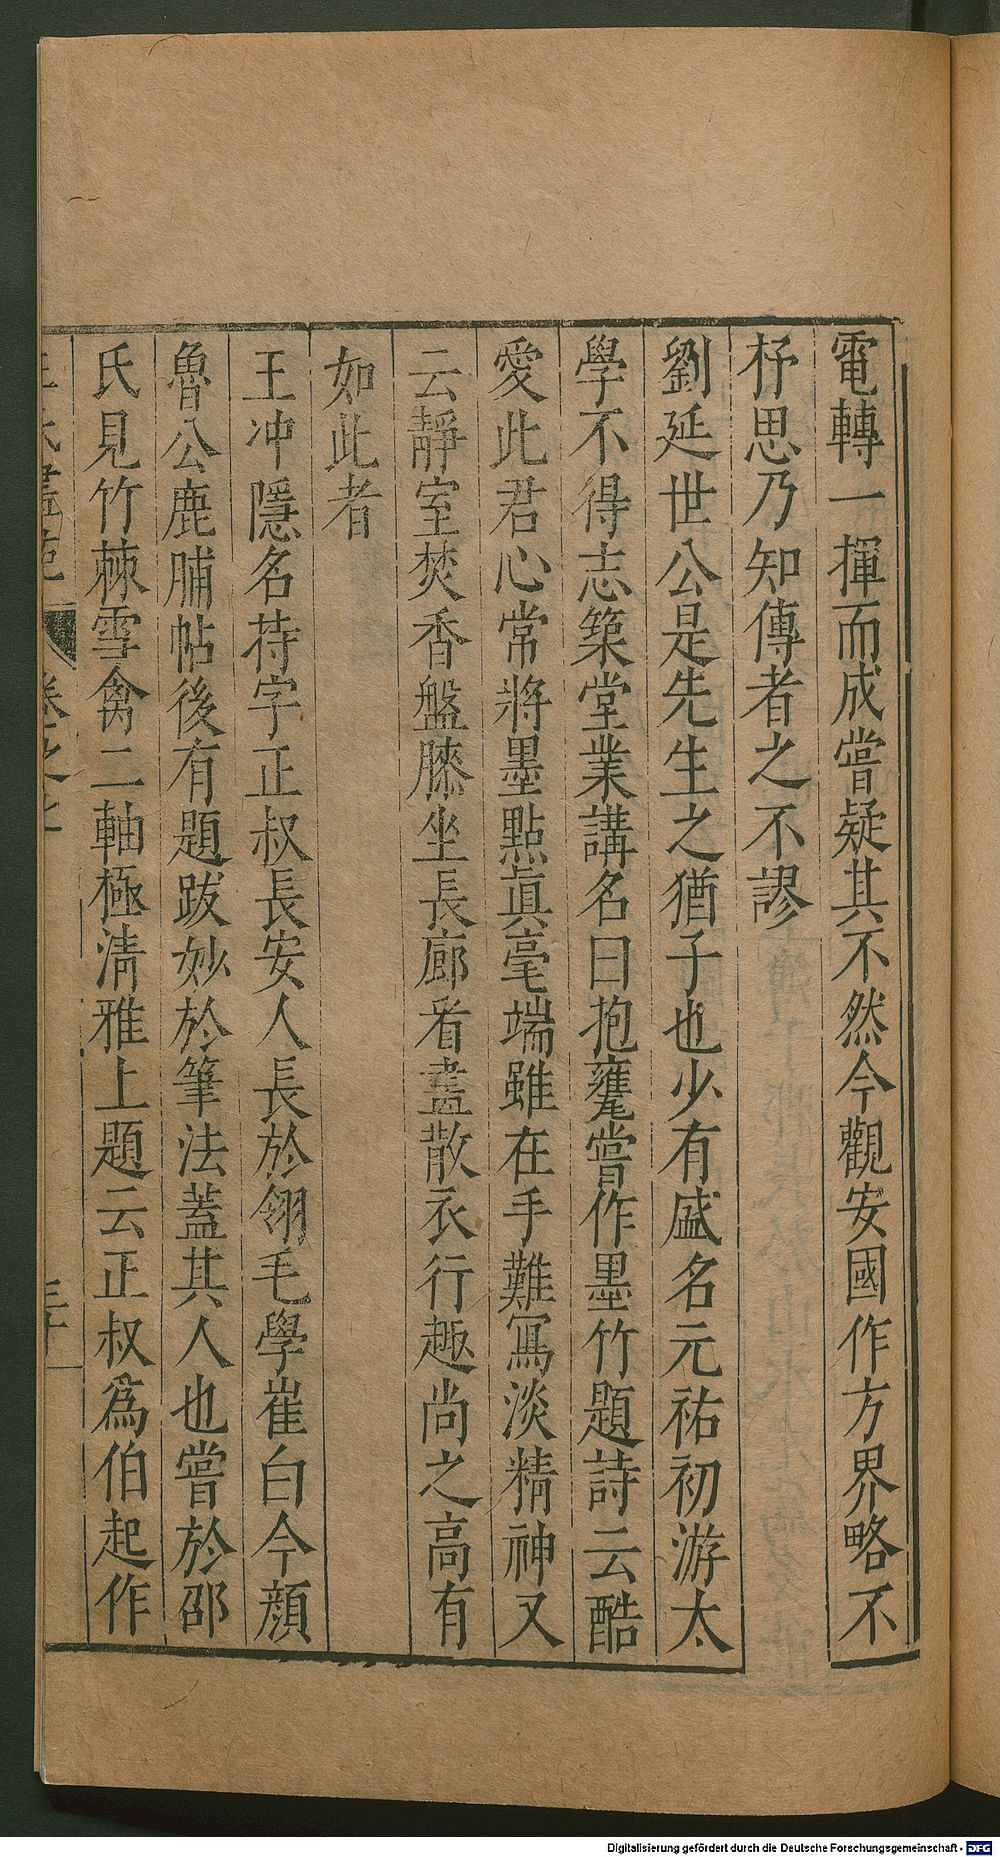 電轉一揮而成嘗疑其不然今觀安國作方界略不
杼思乃知傳者之不謬
劉延世公是先生之猶子也少有盛名元祐初游太
學不得志築堂業講名曰抱甕嘗作墨竹題詩云酷
愛此君心常將墨點眞毫端雖在手難寫淡精神又
云靜室焚香盤膝坐長廊看畫散衣行趣尚之高有
如此者
王冲隱名持字正叔長安人長於翎毛學崔白今顏
魯公鹿脯帖後有題跋妙於筆法蓋其人也嘗於邵
氏見竹棘雪禽二軸極淸雅上題云正叔爲伯起作
Digitalisierung gefördert durch die Deutsche Forschungsgemeinschaft - DFG